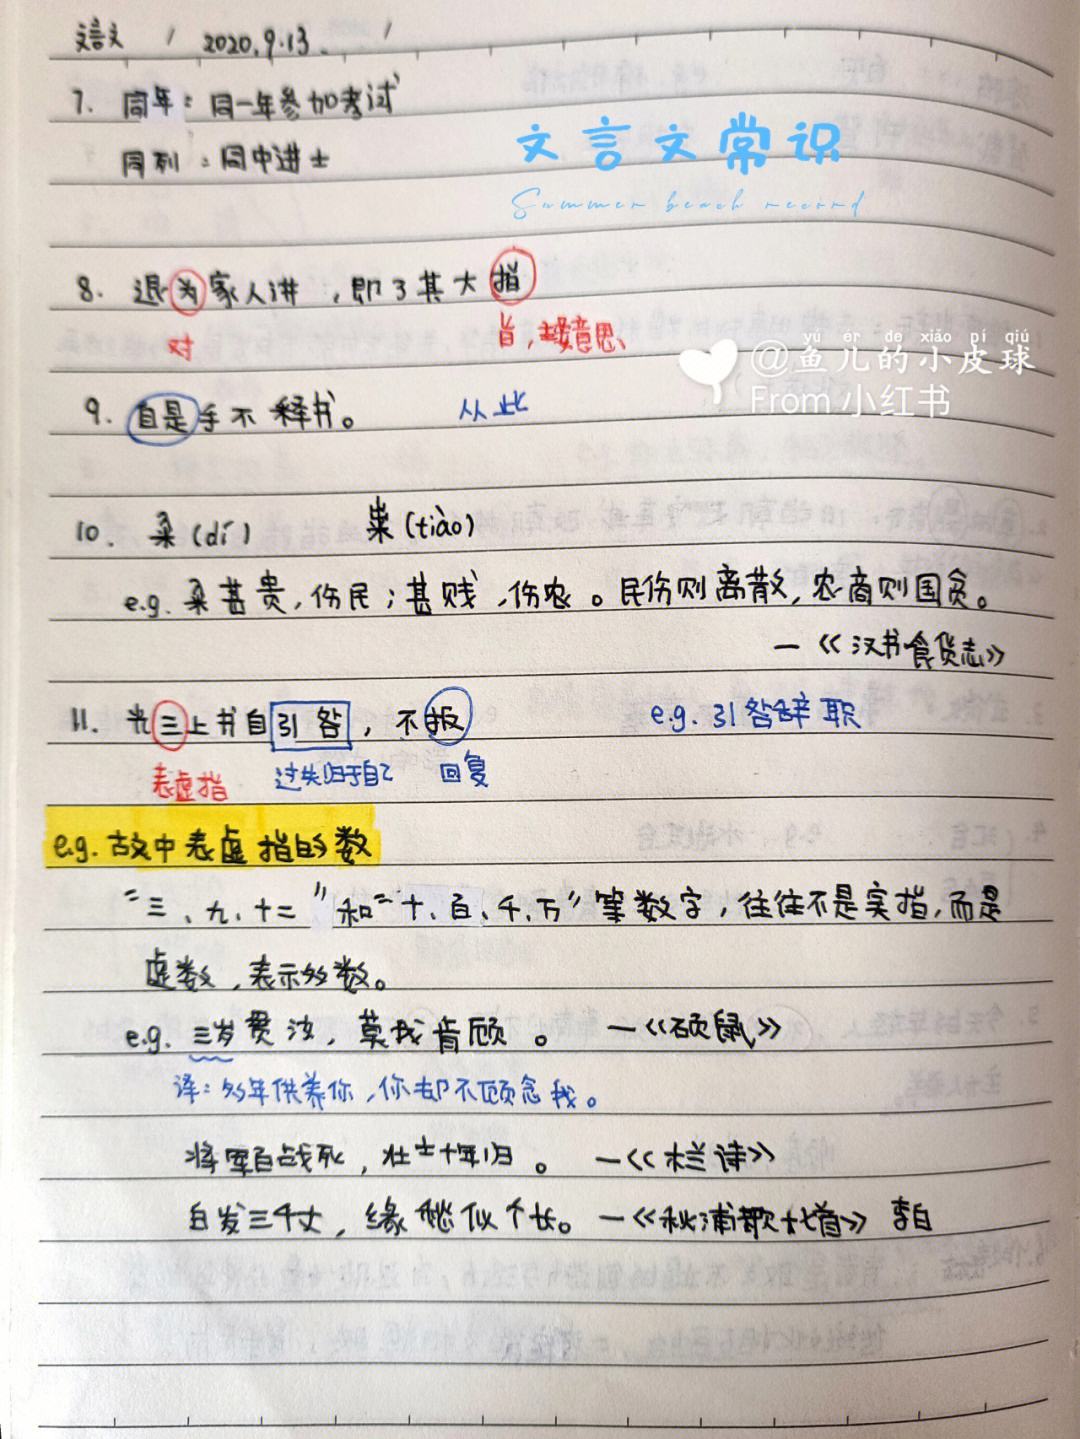 文言文 / 2020.9.13. /
7. 同年：同一年参加考试
同列：同中进士
文言文常识
Summer beach record
8. 退为家人讲，即了其大指
对 旨，主要意思、
yu er de xiǎo pí qiú
@鱼儿的小皮球
From 小红书
9. 自是手不释书。 从此
10. (dí) (tiào)
e.g. 甚贵，伤民；甚贱，伤农。民伤则离散，农商则国贫。
—《汉书食货志》
11. 光三上书自引咎，不报 e.g. 引咎辞职
表虚指 过失归于自己 回复
e.g. 古文中表虚指的数
“三、九、十二”和“十、百、千、万”等数字，往往不是实指，而是
虚数，表示多数。
e.g. 三岁贯汝，莫我肯顾。 —《硕鼠》
译：多年供养你，你却不顾念我。
将军百战死，壮士十年归。 —《栏诗》
白发三千丈，缘愁似个长。 —《秋浦歌十七首》 李白